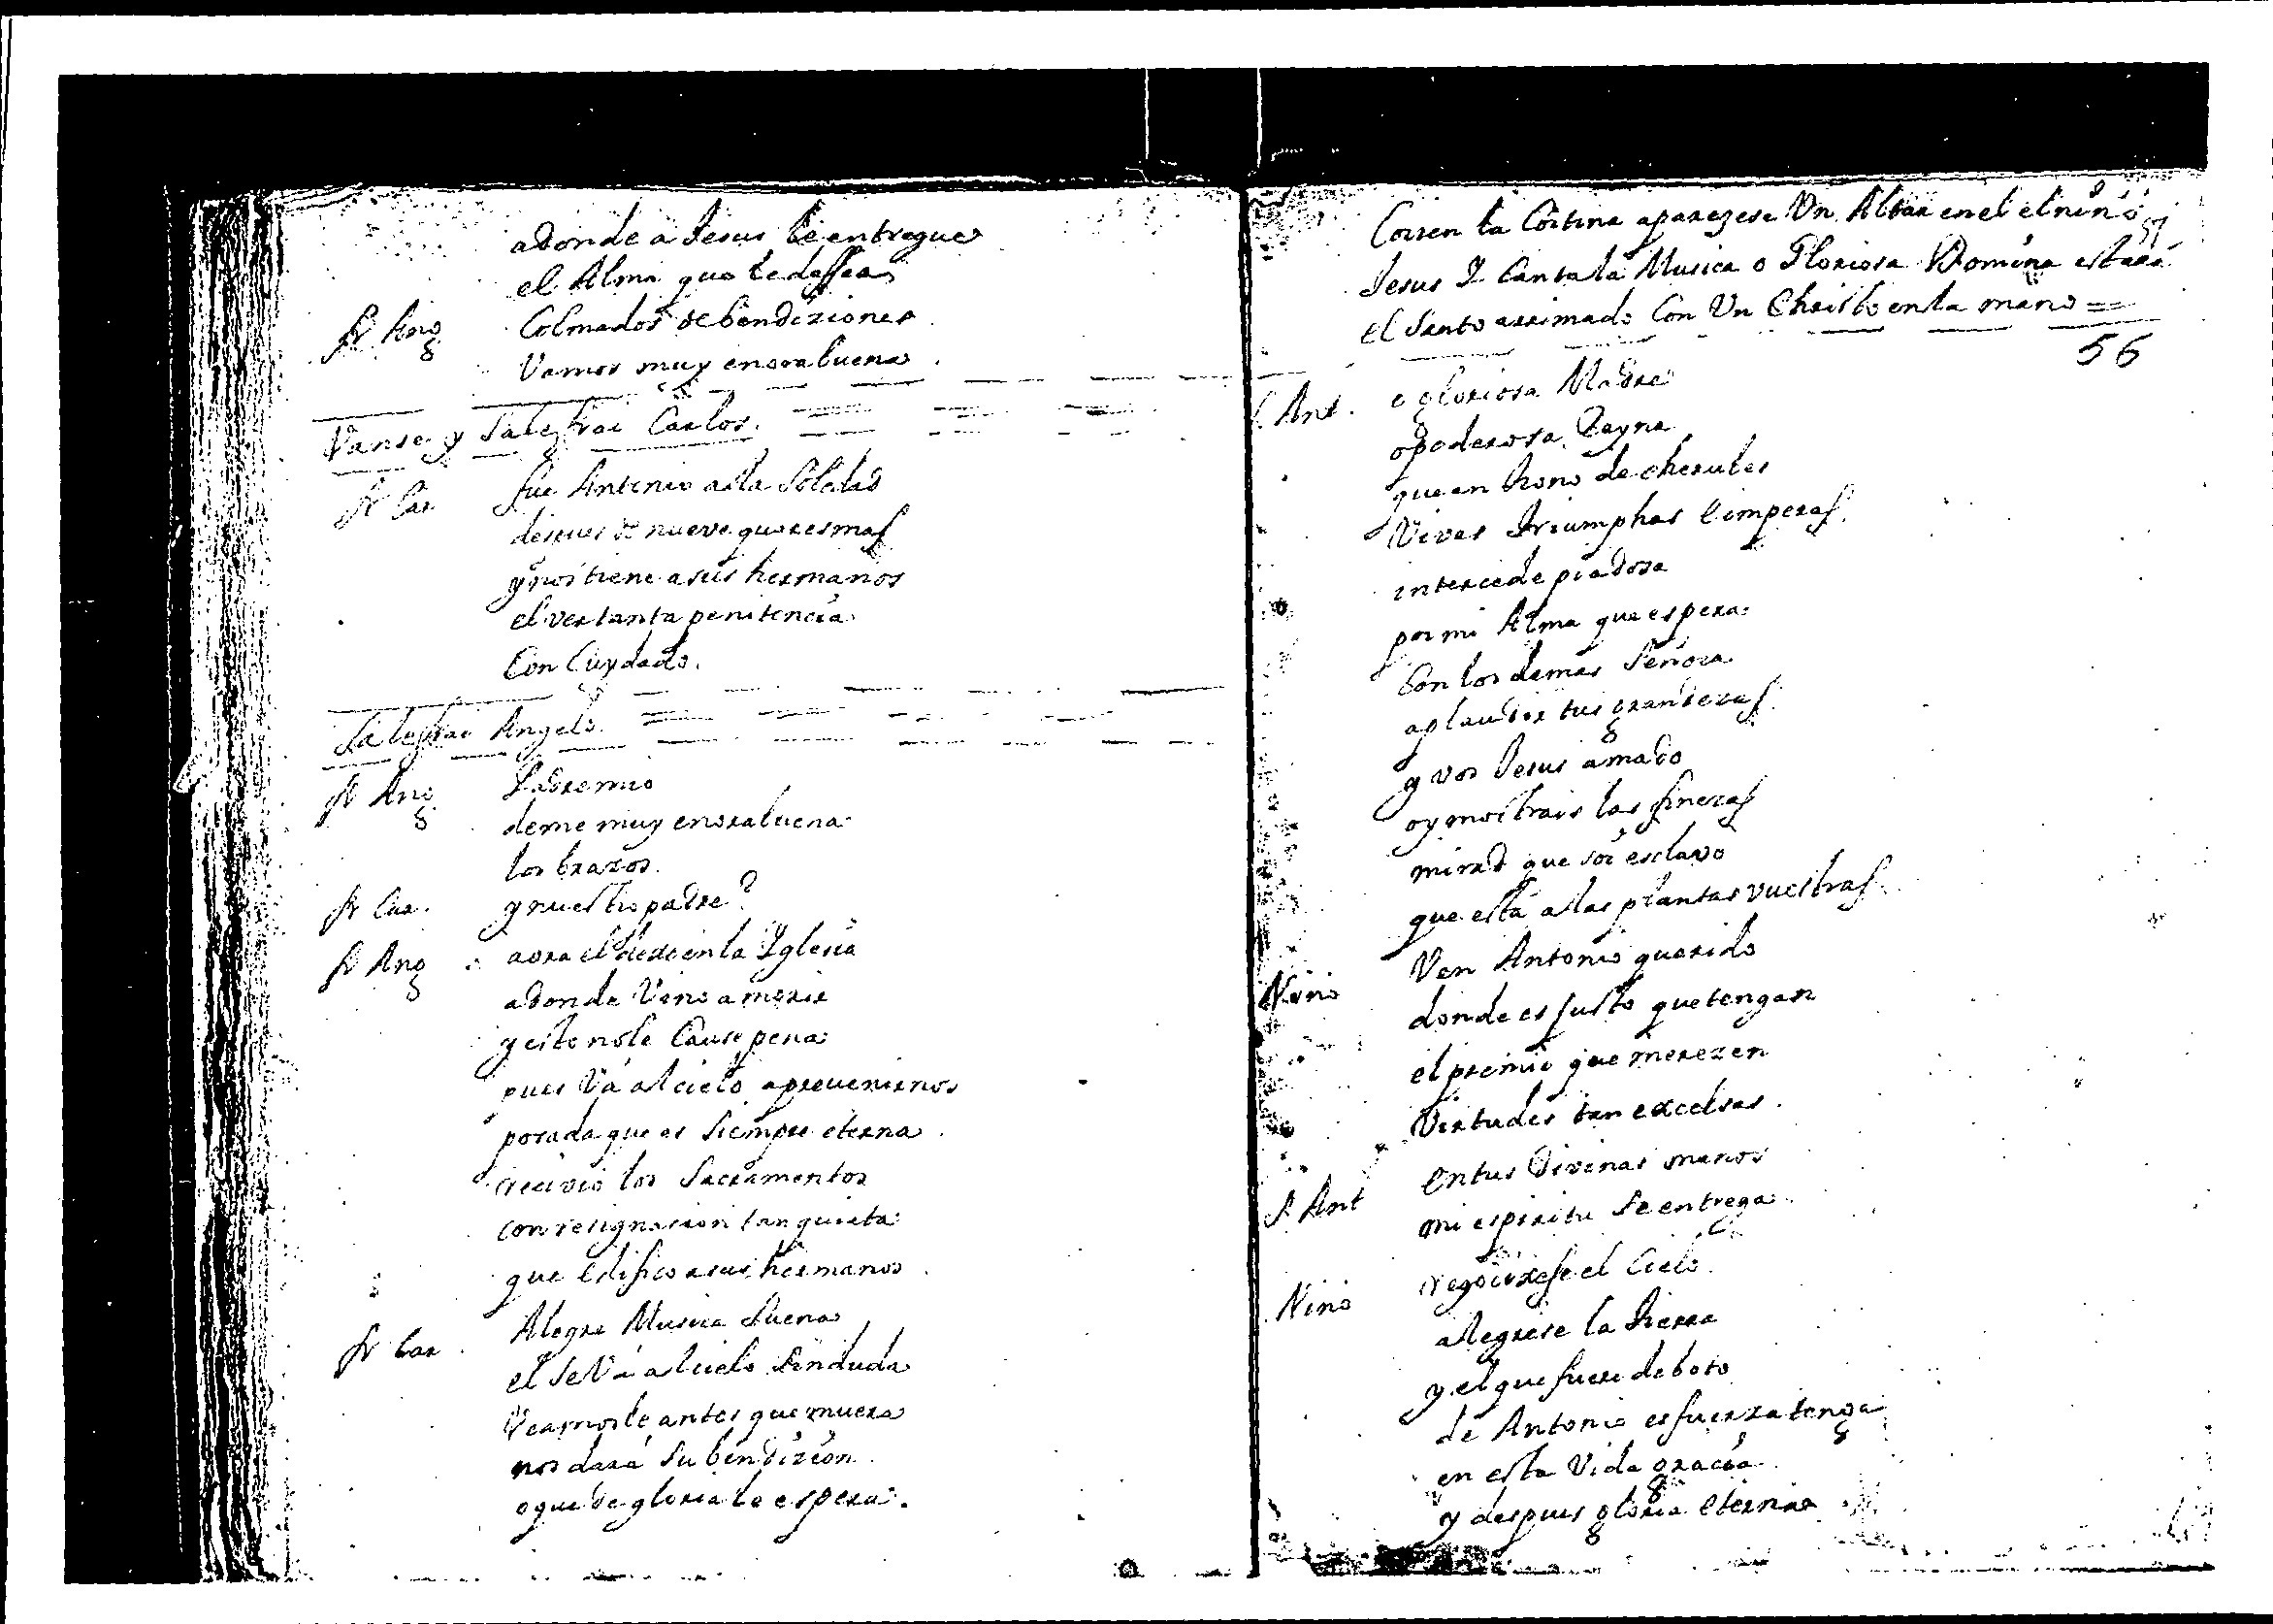 adonde a Jesus le entregue
el Alma que le dessea
fr Ang Colmados de bendiziones
Vamos muy enorabuena
Vanse y Sale frai Carlos.
fr Car fue Antonio a la Soledad
despues de nueve quaresmas
y nos tiene a sus hermanos
el ver tanta penitencia
Con Cuydado.
Sale frai Angelo.
fr Ang Padre mio
deme muy enorabuena
los brazos.
fr Car. y nuestro padre?
fr Ang aora el dexo en la Yglesia
adonde Vino a morir
y esto no le Cause pena
pues Vá al cielo a prevenirnos
posada que es Siempre eterna
recivio los Sacramentos
con resignasion tan quieta
que edifico a sus hermanos
Alegre Musica Suena
fr Car el se Vá al cielo Sin duda
Veamosle antes que muera
nos dará Su bendizion
o que de gloria le espera.
Corren la Cortina aparezese Un Altar en el el niño
Jesus Y Canta la Musica o Gloriosa Domina estará
el Santo arrimado Con Un Christo en la mano =
56
S. Ant. o gloriosa Madre
o poderosa Reyna
que en trono de cherubes
Vives triumphas e imperas.
intercede piadosa
por mi Alma que espera
Con los demas Señora
aplaudir tus grandezas
y vos Jesus amado
oy mostrais las finezas
mirad que soi esclavo
que está a las plantas vuestras
Niño Ven Antonio querido
donde es justo que tengan
el premio que merezen
Virtudes tan excelsas.
S Ant en tus divinas manos
mi espiritu se entrega
Niño regocixese el Cielo
alegrese la tierra
y el que fuere deboto
de Antonio es fuerza tenga
en esta Vida gracia
y despues gloria eterna